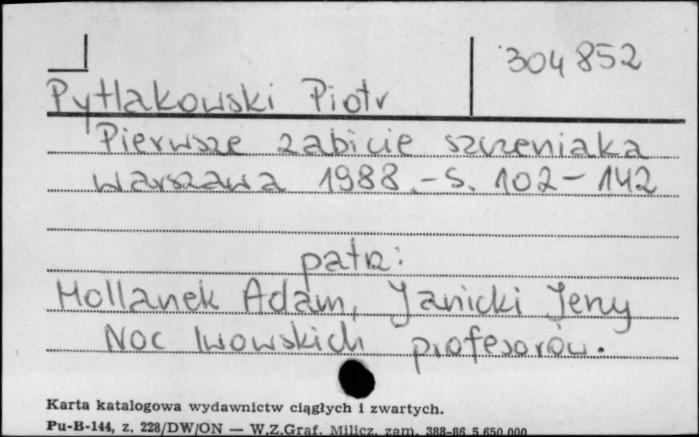 304852
Pytlakowski Piotr
Pierwsze zabicie szczeniaka
Warszawa 1988.-S. 102-142
patrz:
Hollanek Adam, Janicki Jerzy
Noc lwowskich profesorów.
Karta katalogowa wydawnictw ciągłych i zwartych.
Pu-B-144, z. 228/DW/ON — W.Z.Graf. Milicz. zam. 388-86 5.650.000